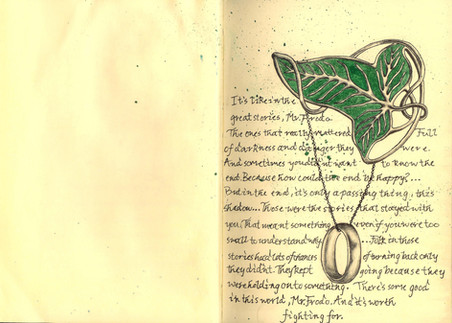 It's like in the
great stories, Mr. Frodo.
The ones that really mattered Full
of darkness and danger they were.
And sometimes you didn't want to know the
end. Because how could the end be happy?...
But in the end, it's only a passing thing, this
shadow... Those were the stories that stayed with
you. That meant something even if you were too
small to understand why ... Folk in those
stories had lots of chances of turning back only
they didn't. They kept going because they
were holding on to something. There's some good
in this world, Mr. Frodo. And it's worth
fighting for.